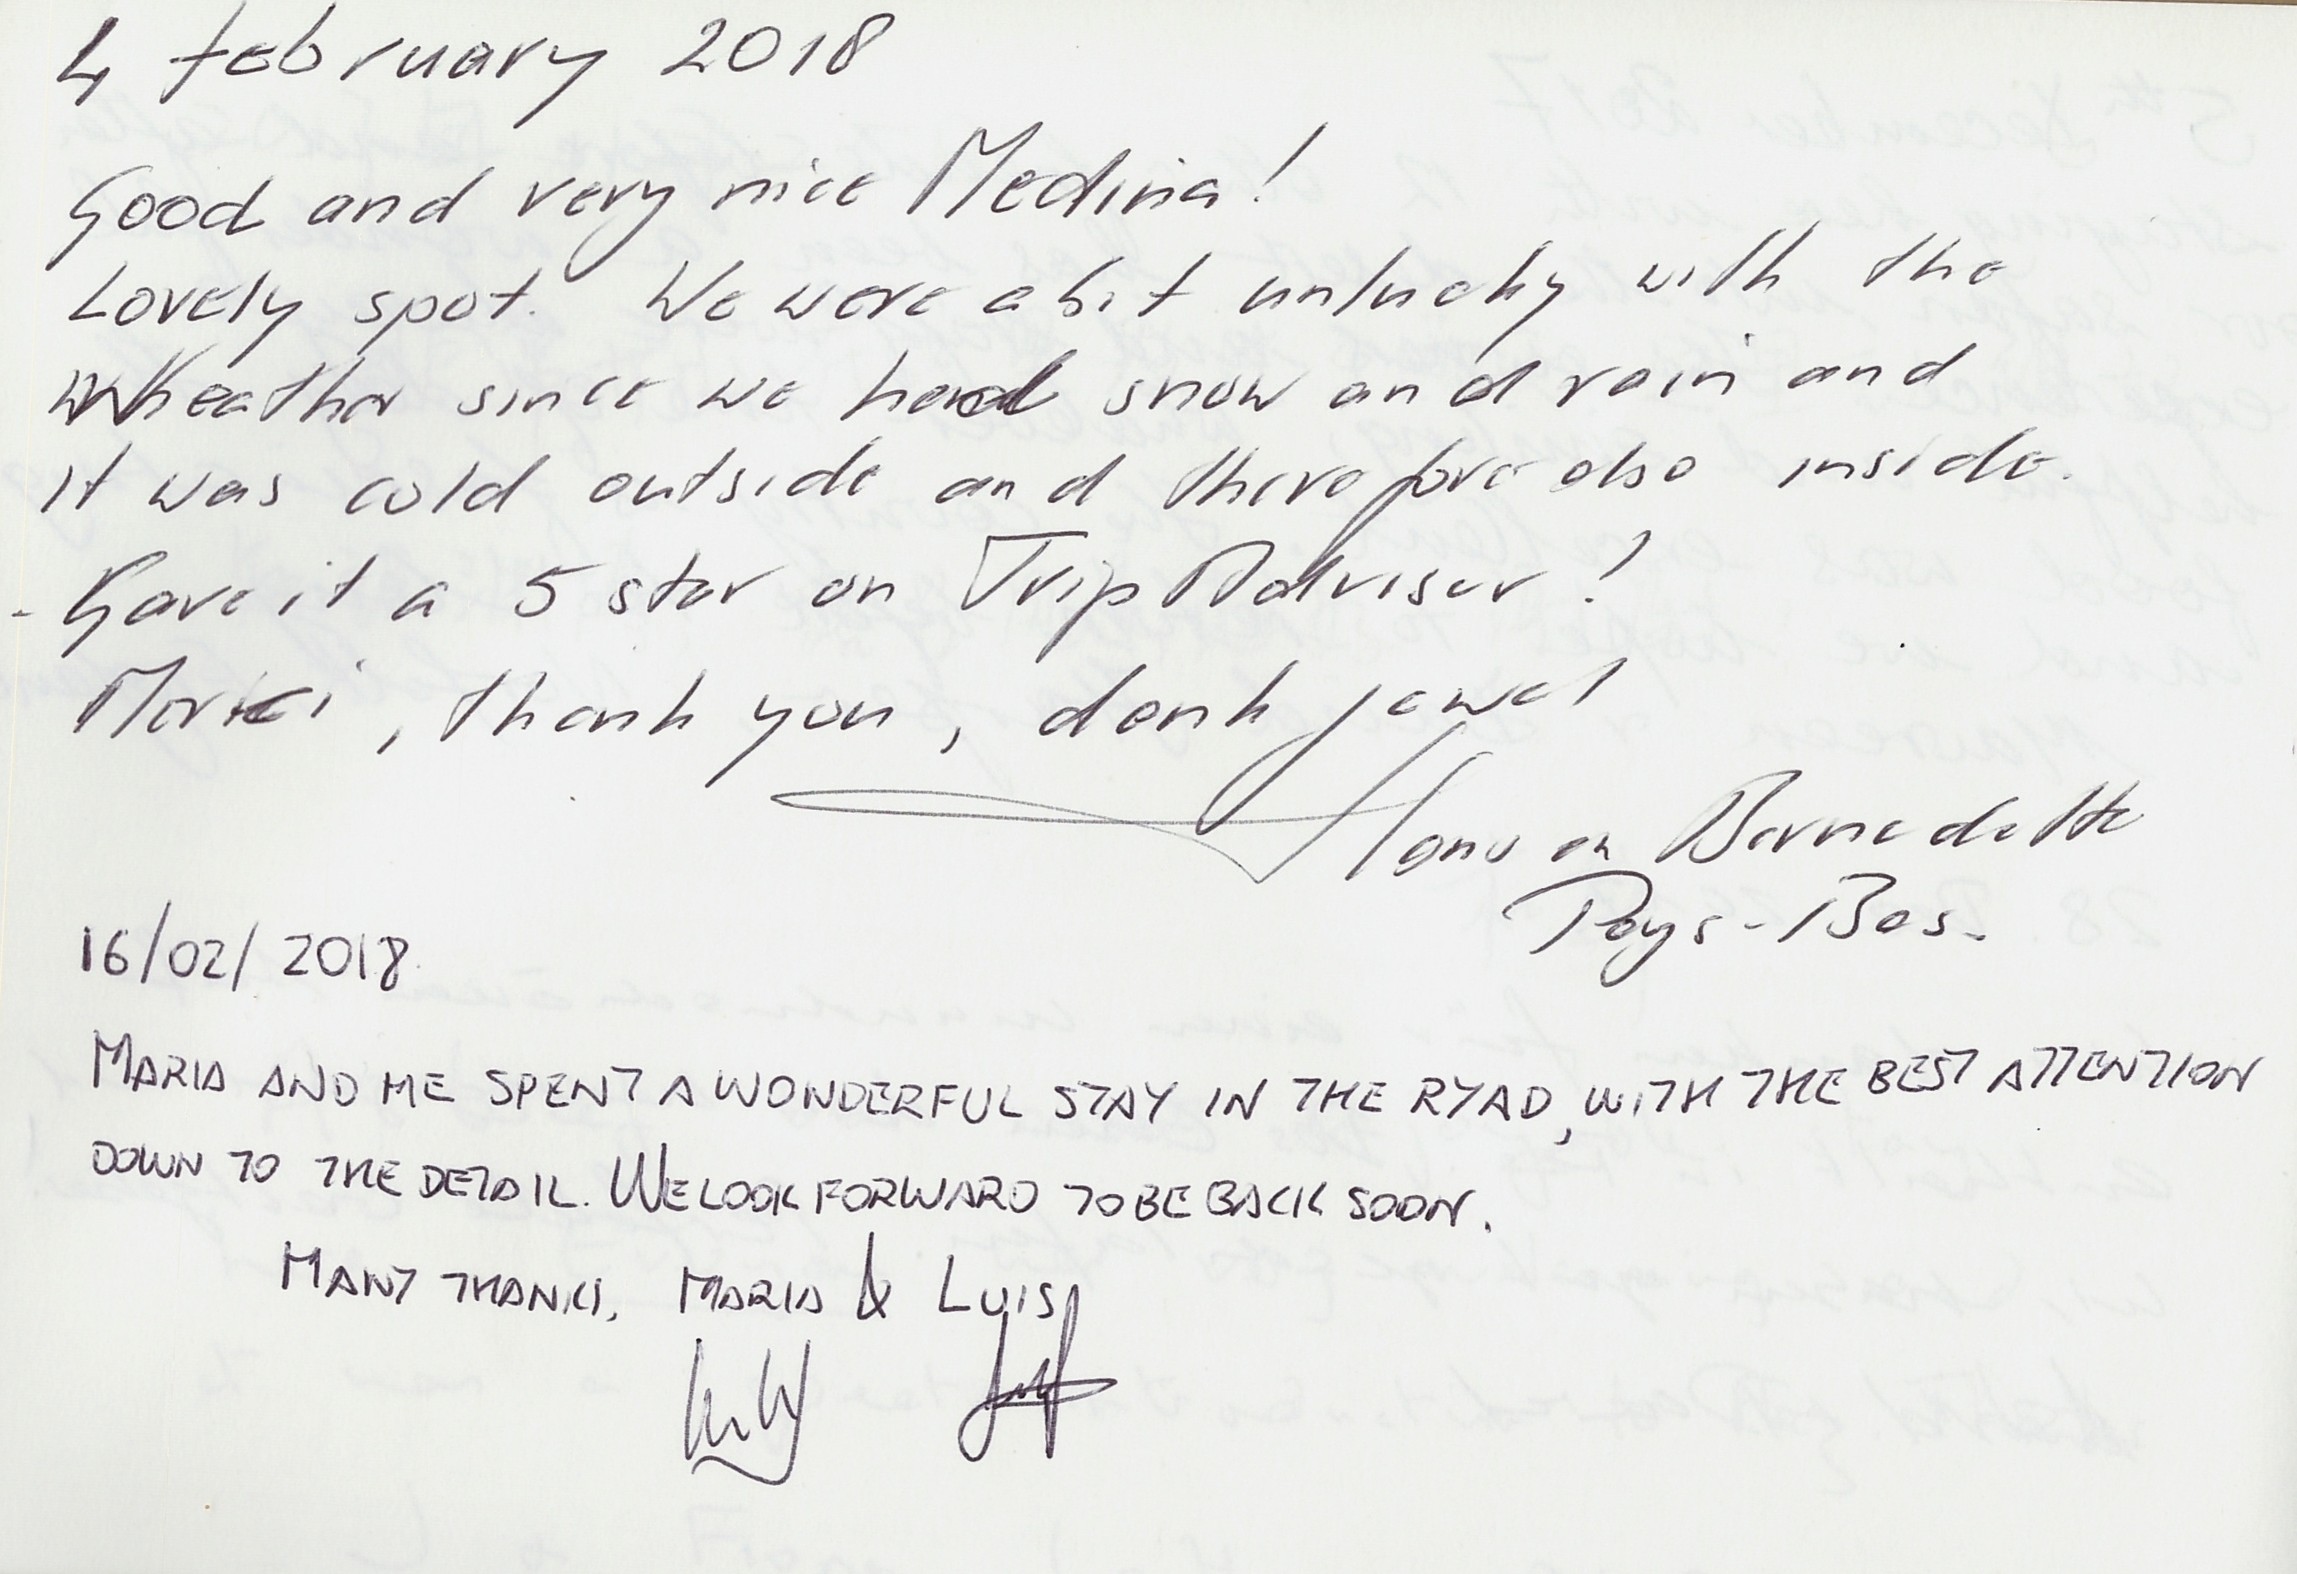 4 february 2018
Good and very nice Medina!
Lovely spot. We were a bit unlucky with the
Wheather since we had snow and rain and
it was cold outside and therefore also inside.
- Gave it a 5 star on TripAdviser!
Merci, thank you, dank je wel
en Bernedette
Pays-Bas.
16/02/2018
MARIA AND ME SPENT A WONDERFUL STAY IN THE RYAD, WITH THE BEST ATTENTION
DOWN TO THE DETAIL. WE LOOK FORWARD TO BE BACK SOON.
MANY THANKS, MARIA & LUIS